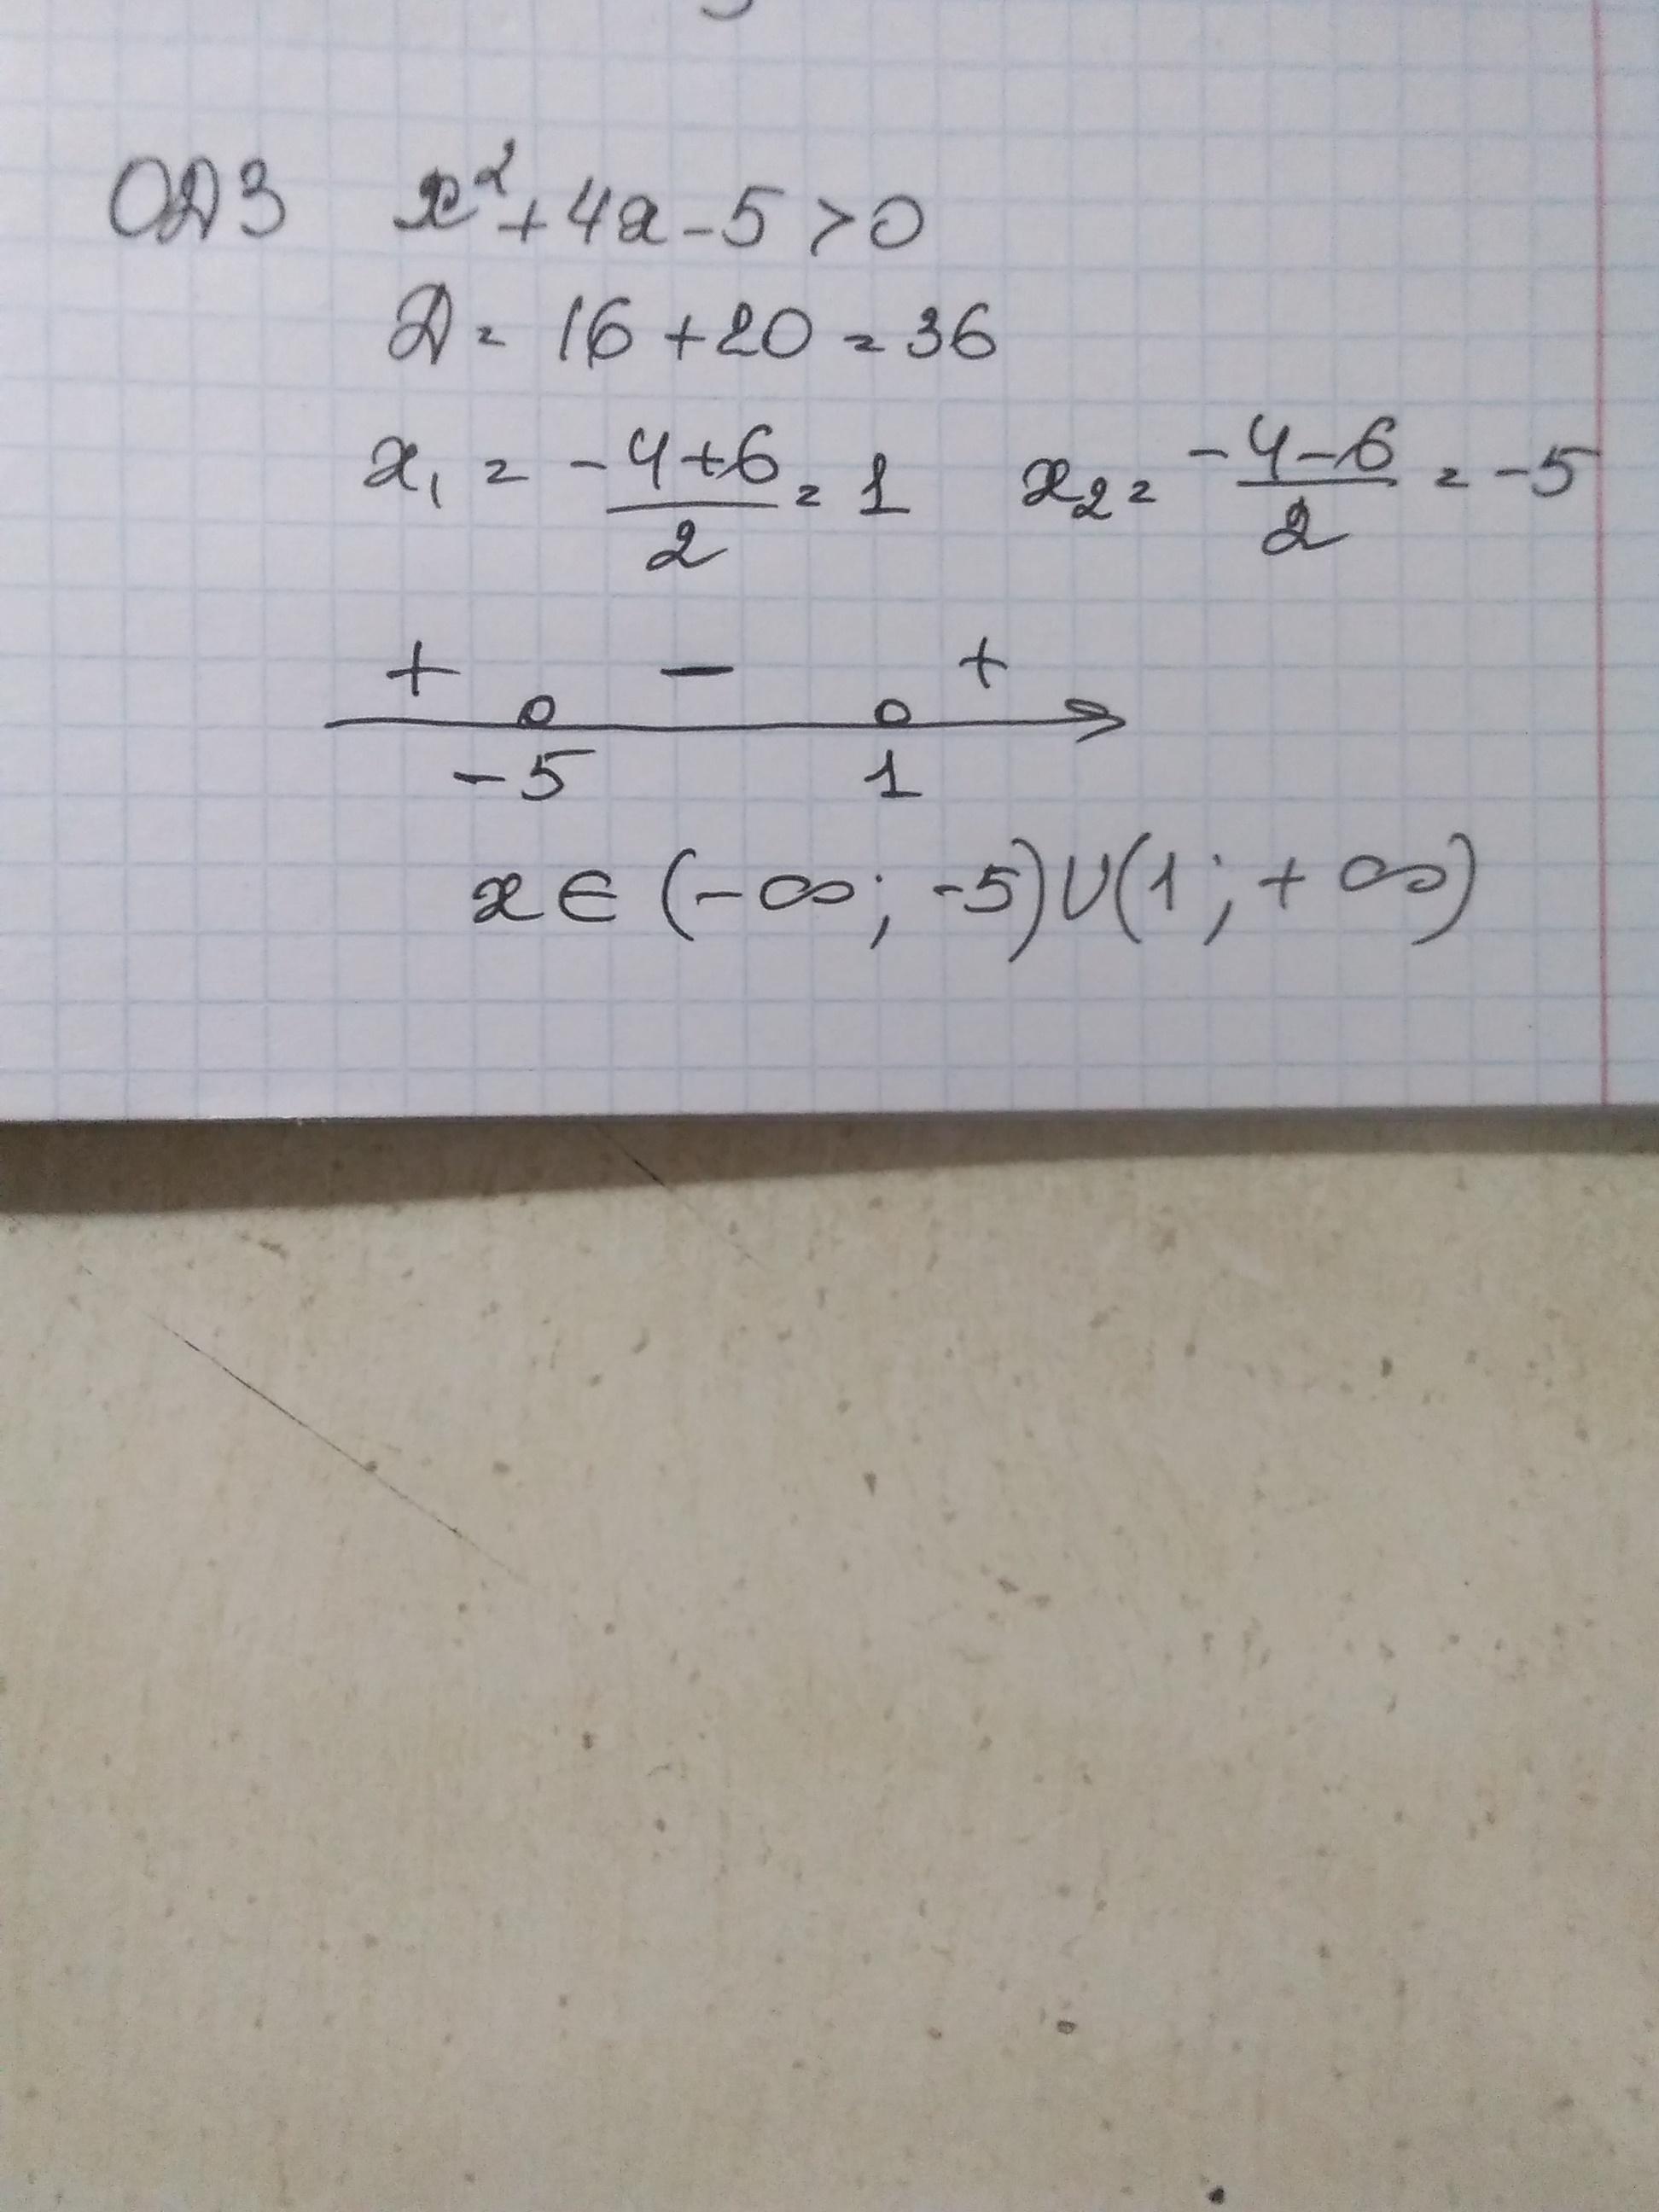 ОДЗ x² + 4x - 5 > 0
Д = 16 + 20 = 36
x₁ = \frac{-4+6}{2} = 1 x₂ = \frac{-4-6}{2} = -5
+ - +
-5 1
x ∈ (-∞; -5) ∪ (1; +∞)